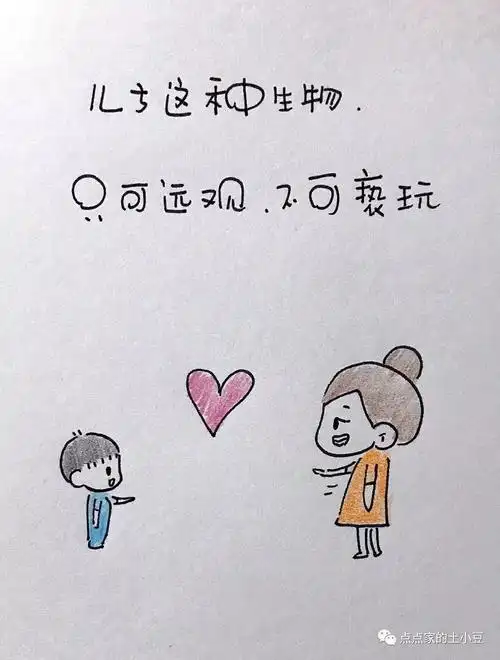 儿子这种生物.
只可远观.不可亵玩
点点家的土小豆